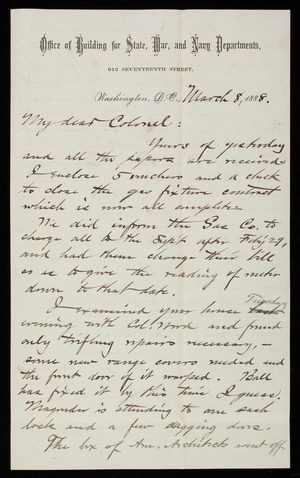 Office of Building for State, War, and Navy Departments,
612 SEVENTEENTH STREET,
Washington, D.C., March 8, 1888.
My dear Colonel:
Yours of yesterday
and all the papers are received.
I enclose 5 vouchers and a check
to close the gas fixture contract
which is now all complete.
We did inform the Gas Co. to
charge all to the Dept after Feby 29,
and had them change their bill
so as to give the reading of meter
down to that date.
I examined your house Tuesday
evening with Col. and found
only trifling repairs necessary, –
some new range covers needed and
the front door of it warped. Ball
has fixed it by this time I guess.
Magruder is attending to one sash
lock and a few sagging doors.
The box of Am. Architects went off